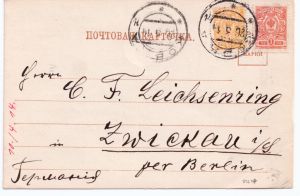 ПОЧТОВАЯ КАРТОЧКА.
Herrn
C. F. Leichsenring
Zwickau i/S
per Berlin
Германія